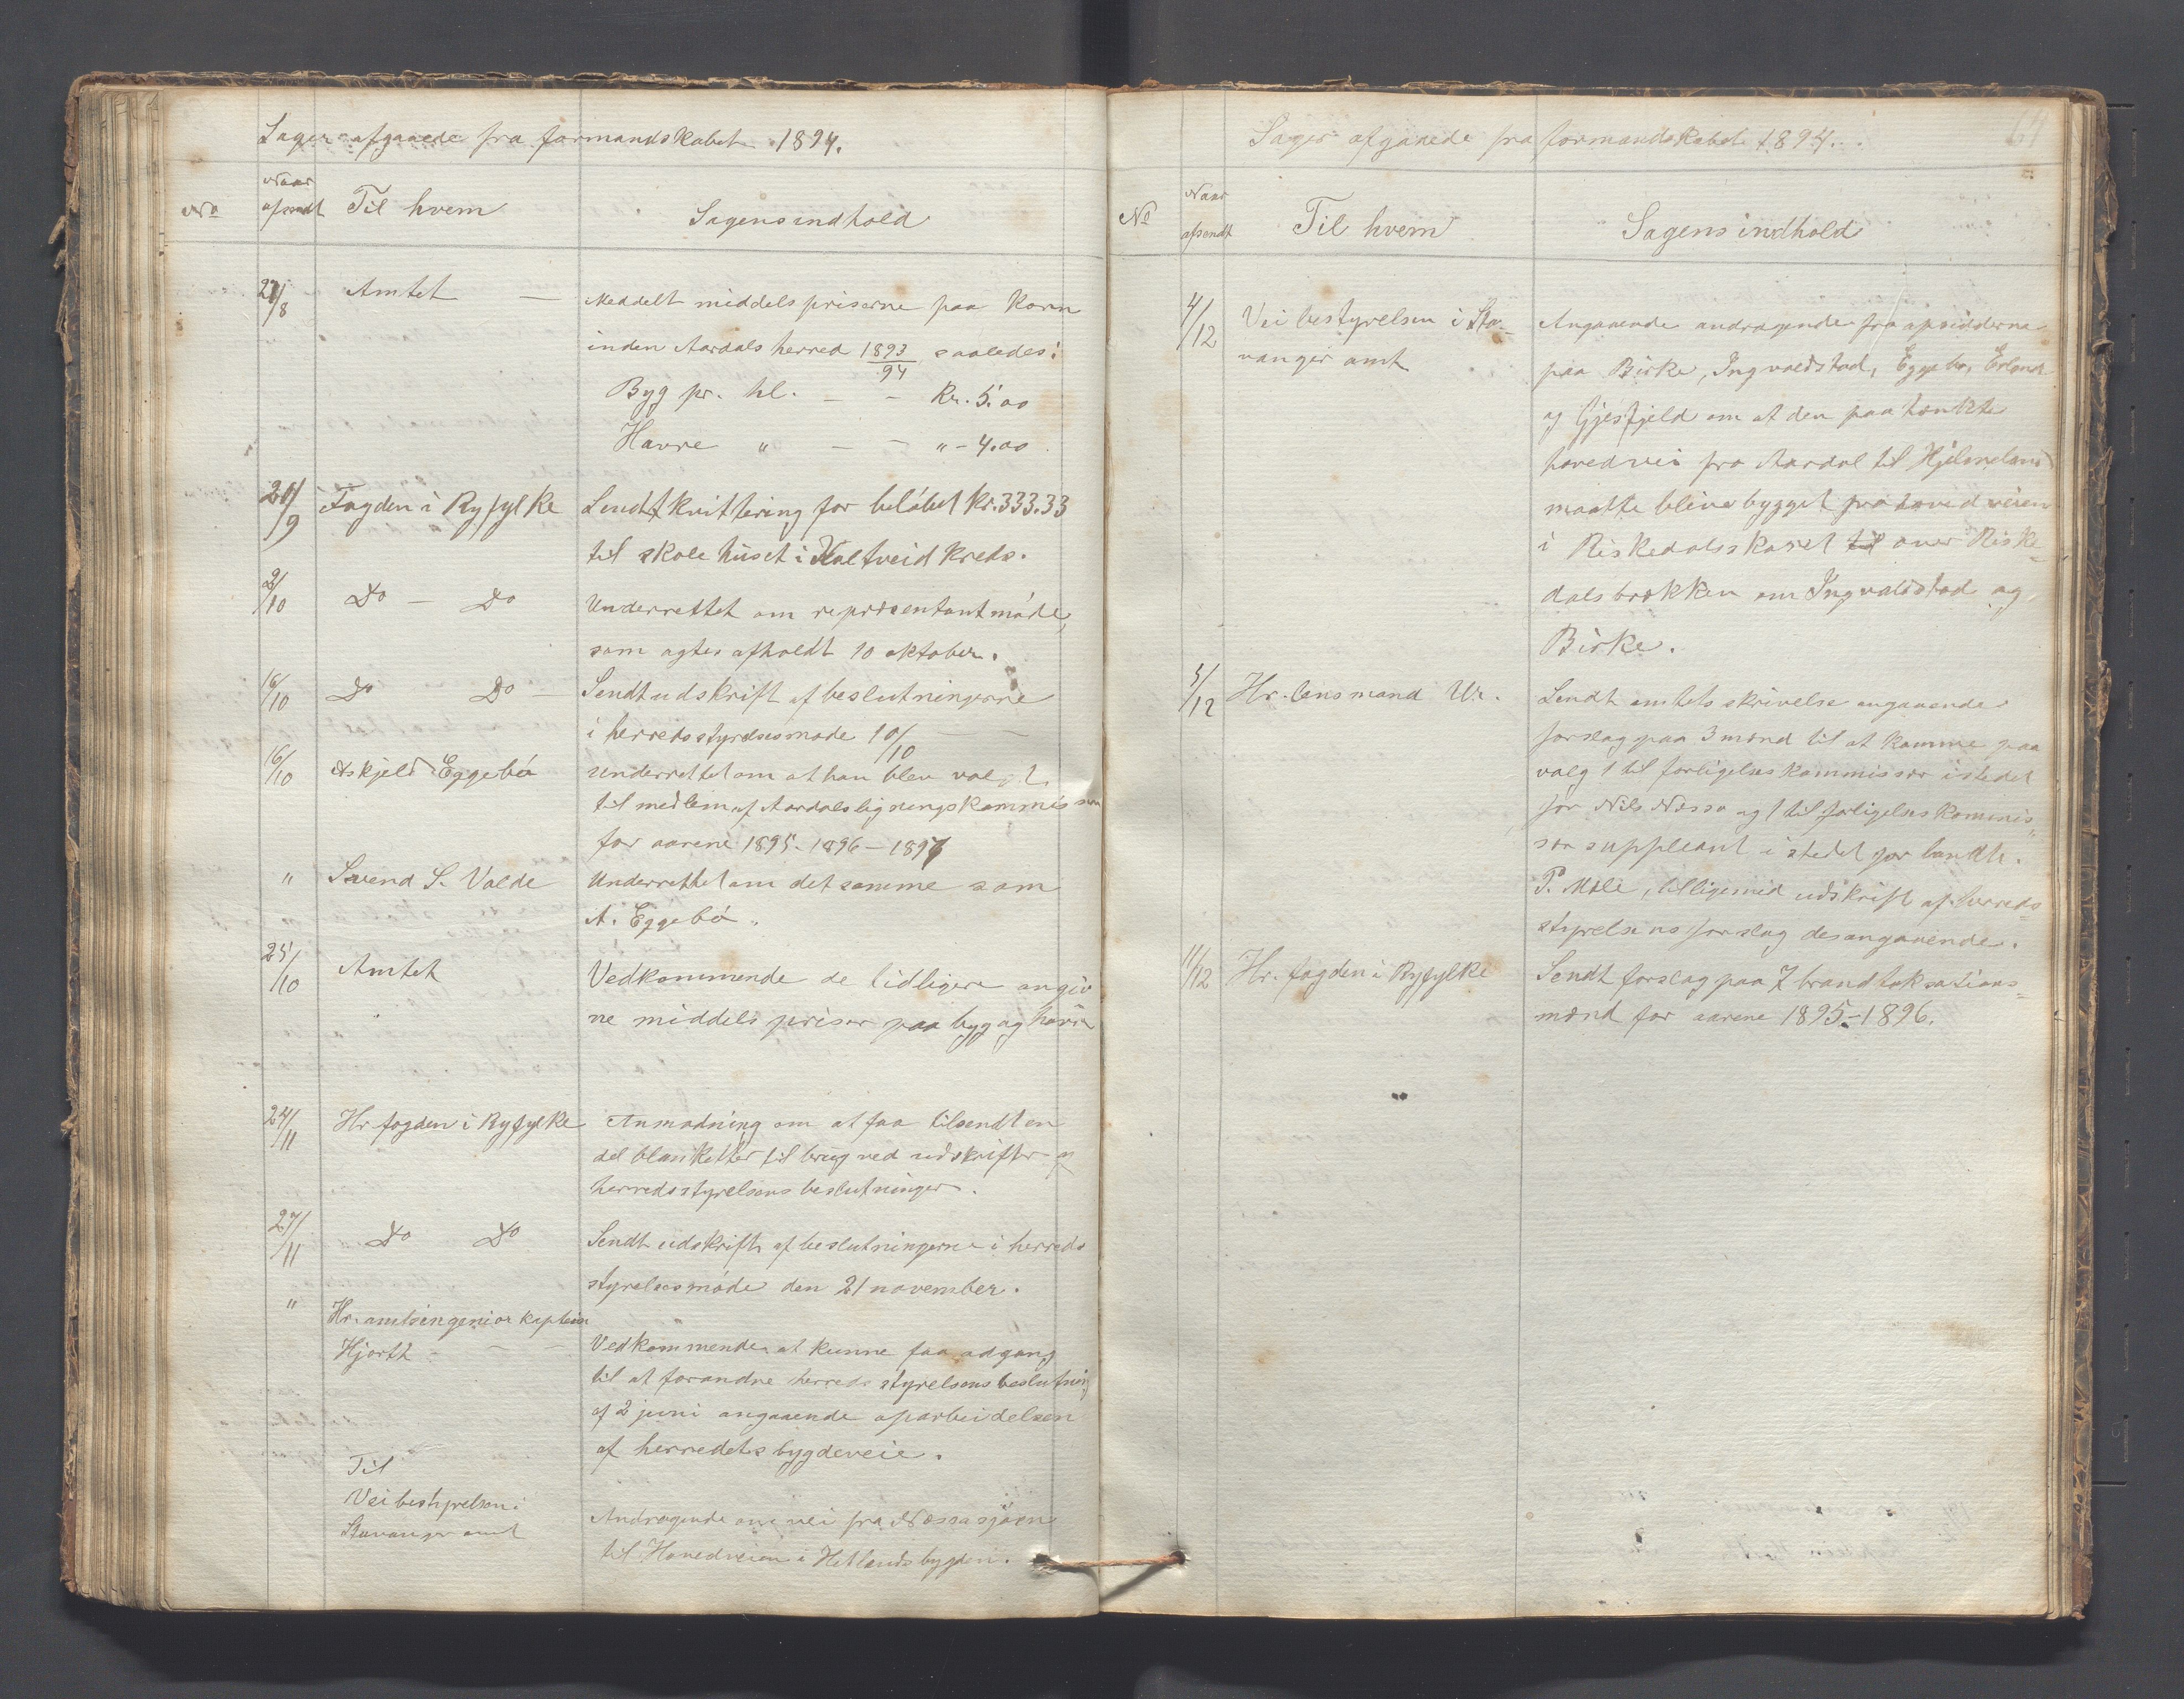 Sager afgaaede fra formandskabet 1894.
No
Naar afsendt
Til hvem
Sagens indhold
27/8 Amtet — Meddelt middelspriserne paa Korn
inden Aardals herred 1893/94 saaledes:
Byg pr. hl. — – Kr. 5.00
Havre " — – " – 4.00
20/9 Fogden i Ryfylke Sendt kvittering for beløbet kr. 333.33
til skolehuset i Valtveid kreds.
2/10 Do — Do Underrettet om repræsentantmøde,
som agtes afholdt 10 oktober.
16/10 Do Do — Sendt udskrift af beslutningerne
i herredsstyrelsesmøde 10/10 — —
16/10 Askjeld Eggebø Underrettet om at han blev valgt
til medlem af Aardals ligningskommission
for aarene 1895 - 1896 - 1897
" Svend S. Valde Underrettet om det samme som
A. Eggebø.
25/10 Amtet Vedkommende de tidligere angiv
ne middelspriser paa byg og havre
24/11 Hr. fogden i Ryfylke Anmodning om at faa tilsendt en
del blanketter til brug ved udskrifter af
herredsstyrelsens beslutninger.
27/11 Do Do Sendt udskrift af beslutningerne i herreds
styrelsesmøde den 21 november.
" Hr. amtsingeniør kaptein
Hjorth — — Vedkommende at kunne faa adgang
til at forandre herredsstyrelsens beslutning
af 2 juni angaaende oparbeidelsen
af herredets bygdeveie.
Til
Veibestyrelsen i
Stavanger amt
Andragende om vei fra Nessa sjøen
til Hovedveien i Hetlandsbygden.
Sager afgaaede fra formandskabet 1894.
No
Naar afsendt
Til hvem
Sagens indhold
4/12 Veibestyrelsen i Sta- Angaaende andragende fra opsidderne
vanger amt paa Birke, Ingvaldstad, Eggebø, Erland
og Gjesfjeld om at den paatænkte
hovedvei fra Aardal til Hjelmeland
maatte blive bygget fra hovedveien
i Riskedalsskaret til over Riske-
dalsbrekken om Ingvaldstad og
Birke.
5/12 Hr. lensmand W. Sendt amtets skrivelse angaaende
forslag paa 3 mænd til at komme paa
valg 1 til forligelseskommissær istedet
for Nils Nessa og 1 til forligelseskommis-
sær suppleant i stedet for landh.
P. Mæle, tilligemed udskrift af herreds-
styrelsens forslag desangaaende.
11/12 Hr. fogden i Ryfylke Sendt forslag paa 7 brandtaksations-
mænd for aarene 1895-1896.